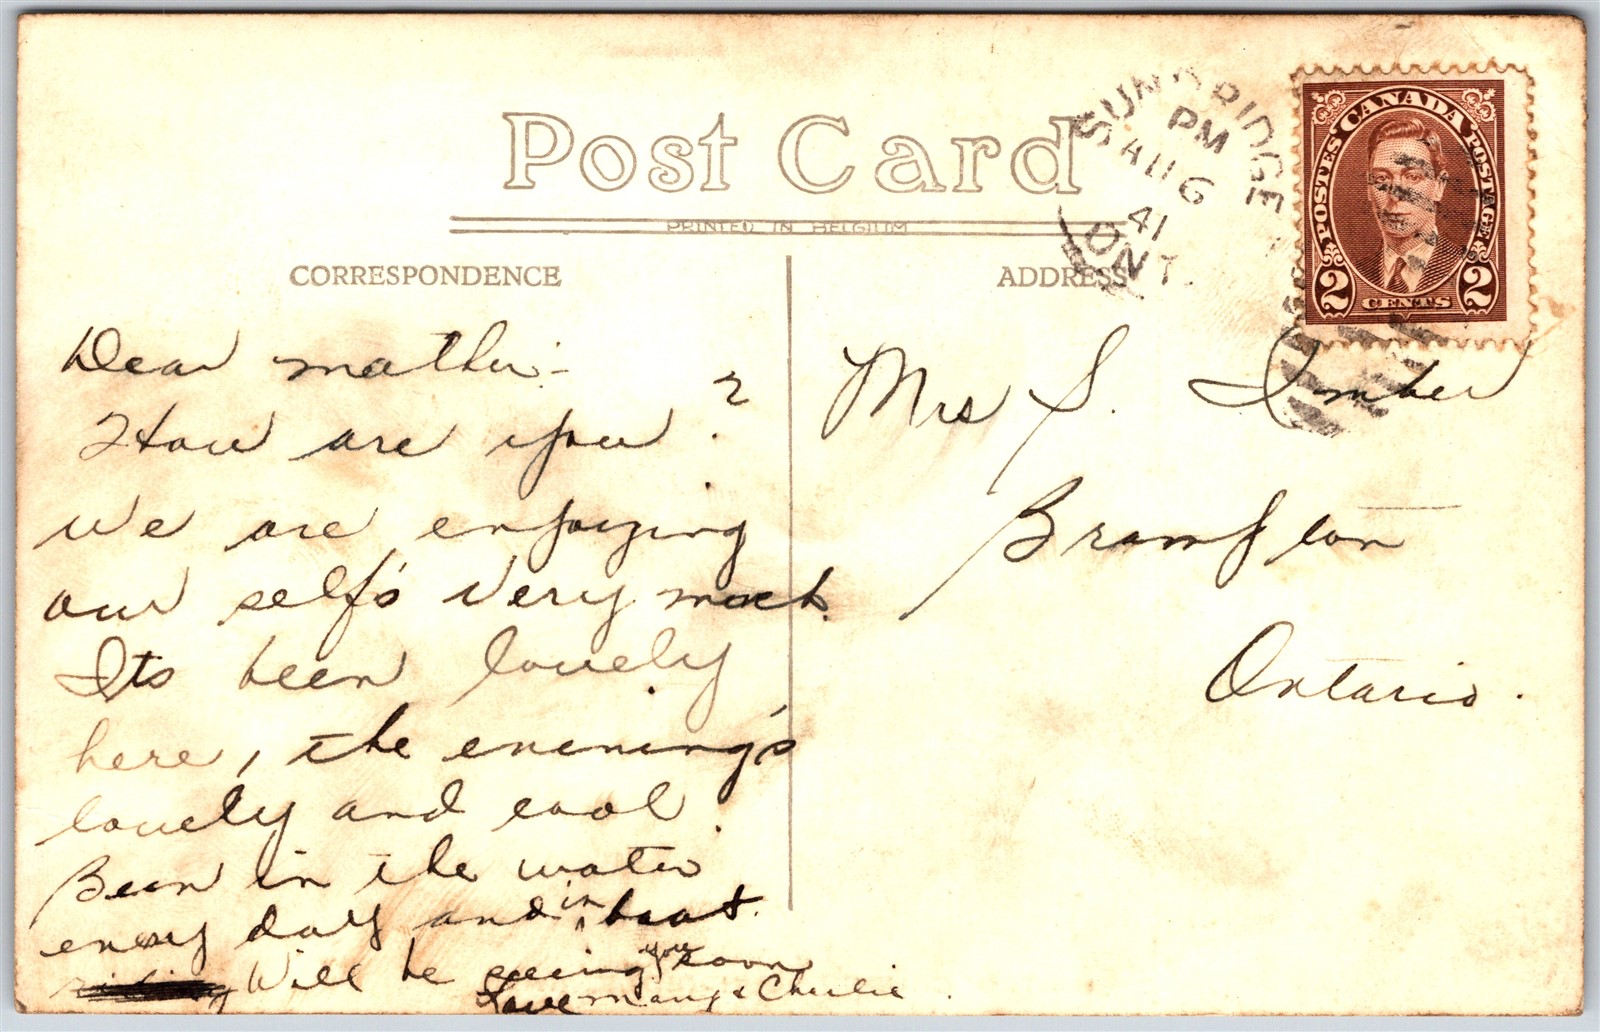 Post Card
PRINTED IN BELGIUM
CORRESPONDENCE
ADDRESS
SUNDRIDGE
PM
AU 6
41
ONT.
CANADA
POSTES POSTAGE
2 CENTS 2
Dear mother:-
How are you?
We are enjoying
our self's very much.
Its been lovely
here, the evening's
lovely and cool.
Been in the water
every day and in boat.
Will be seeing you soon
Love Mary & Charlie.
Mrs S. Imber
Brampton
Ontario.